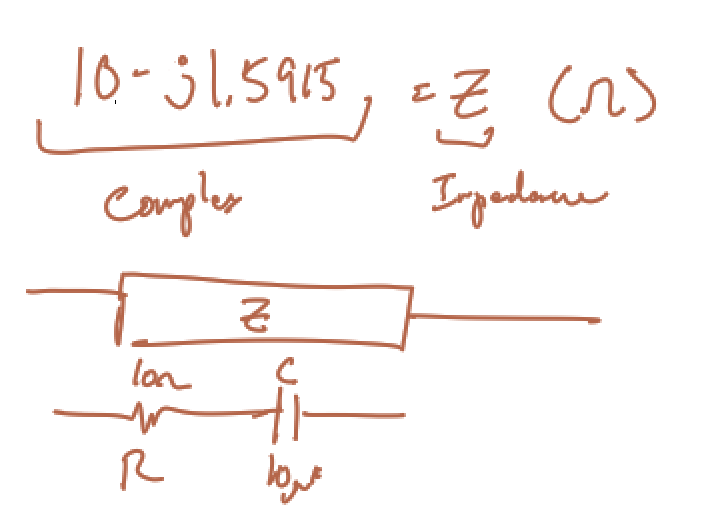 10 - j1.5915 = Z (Ω)
Complex Impedance
Z
10Ω C
R 10μF